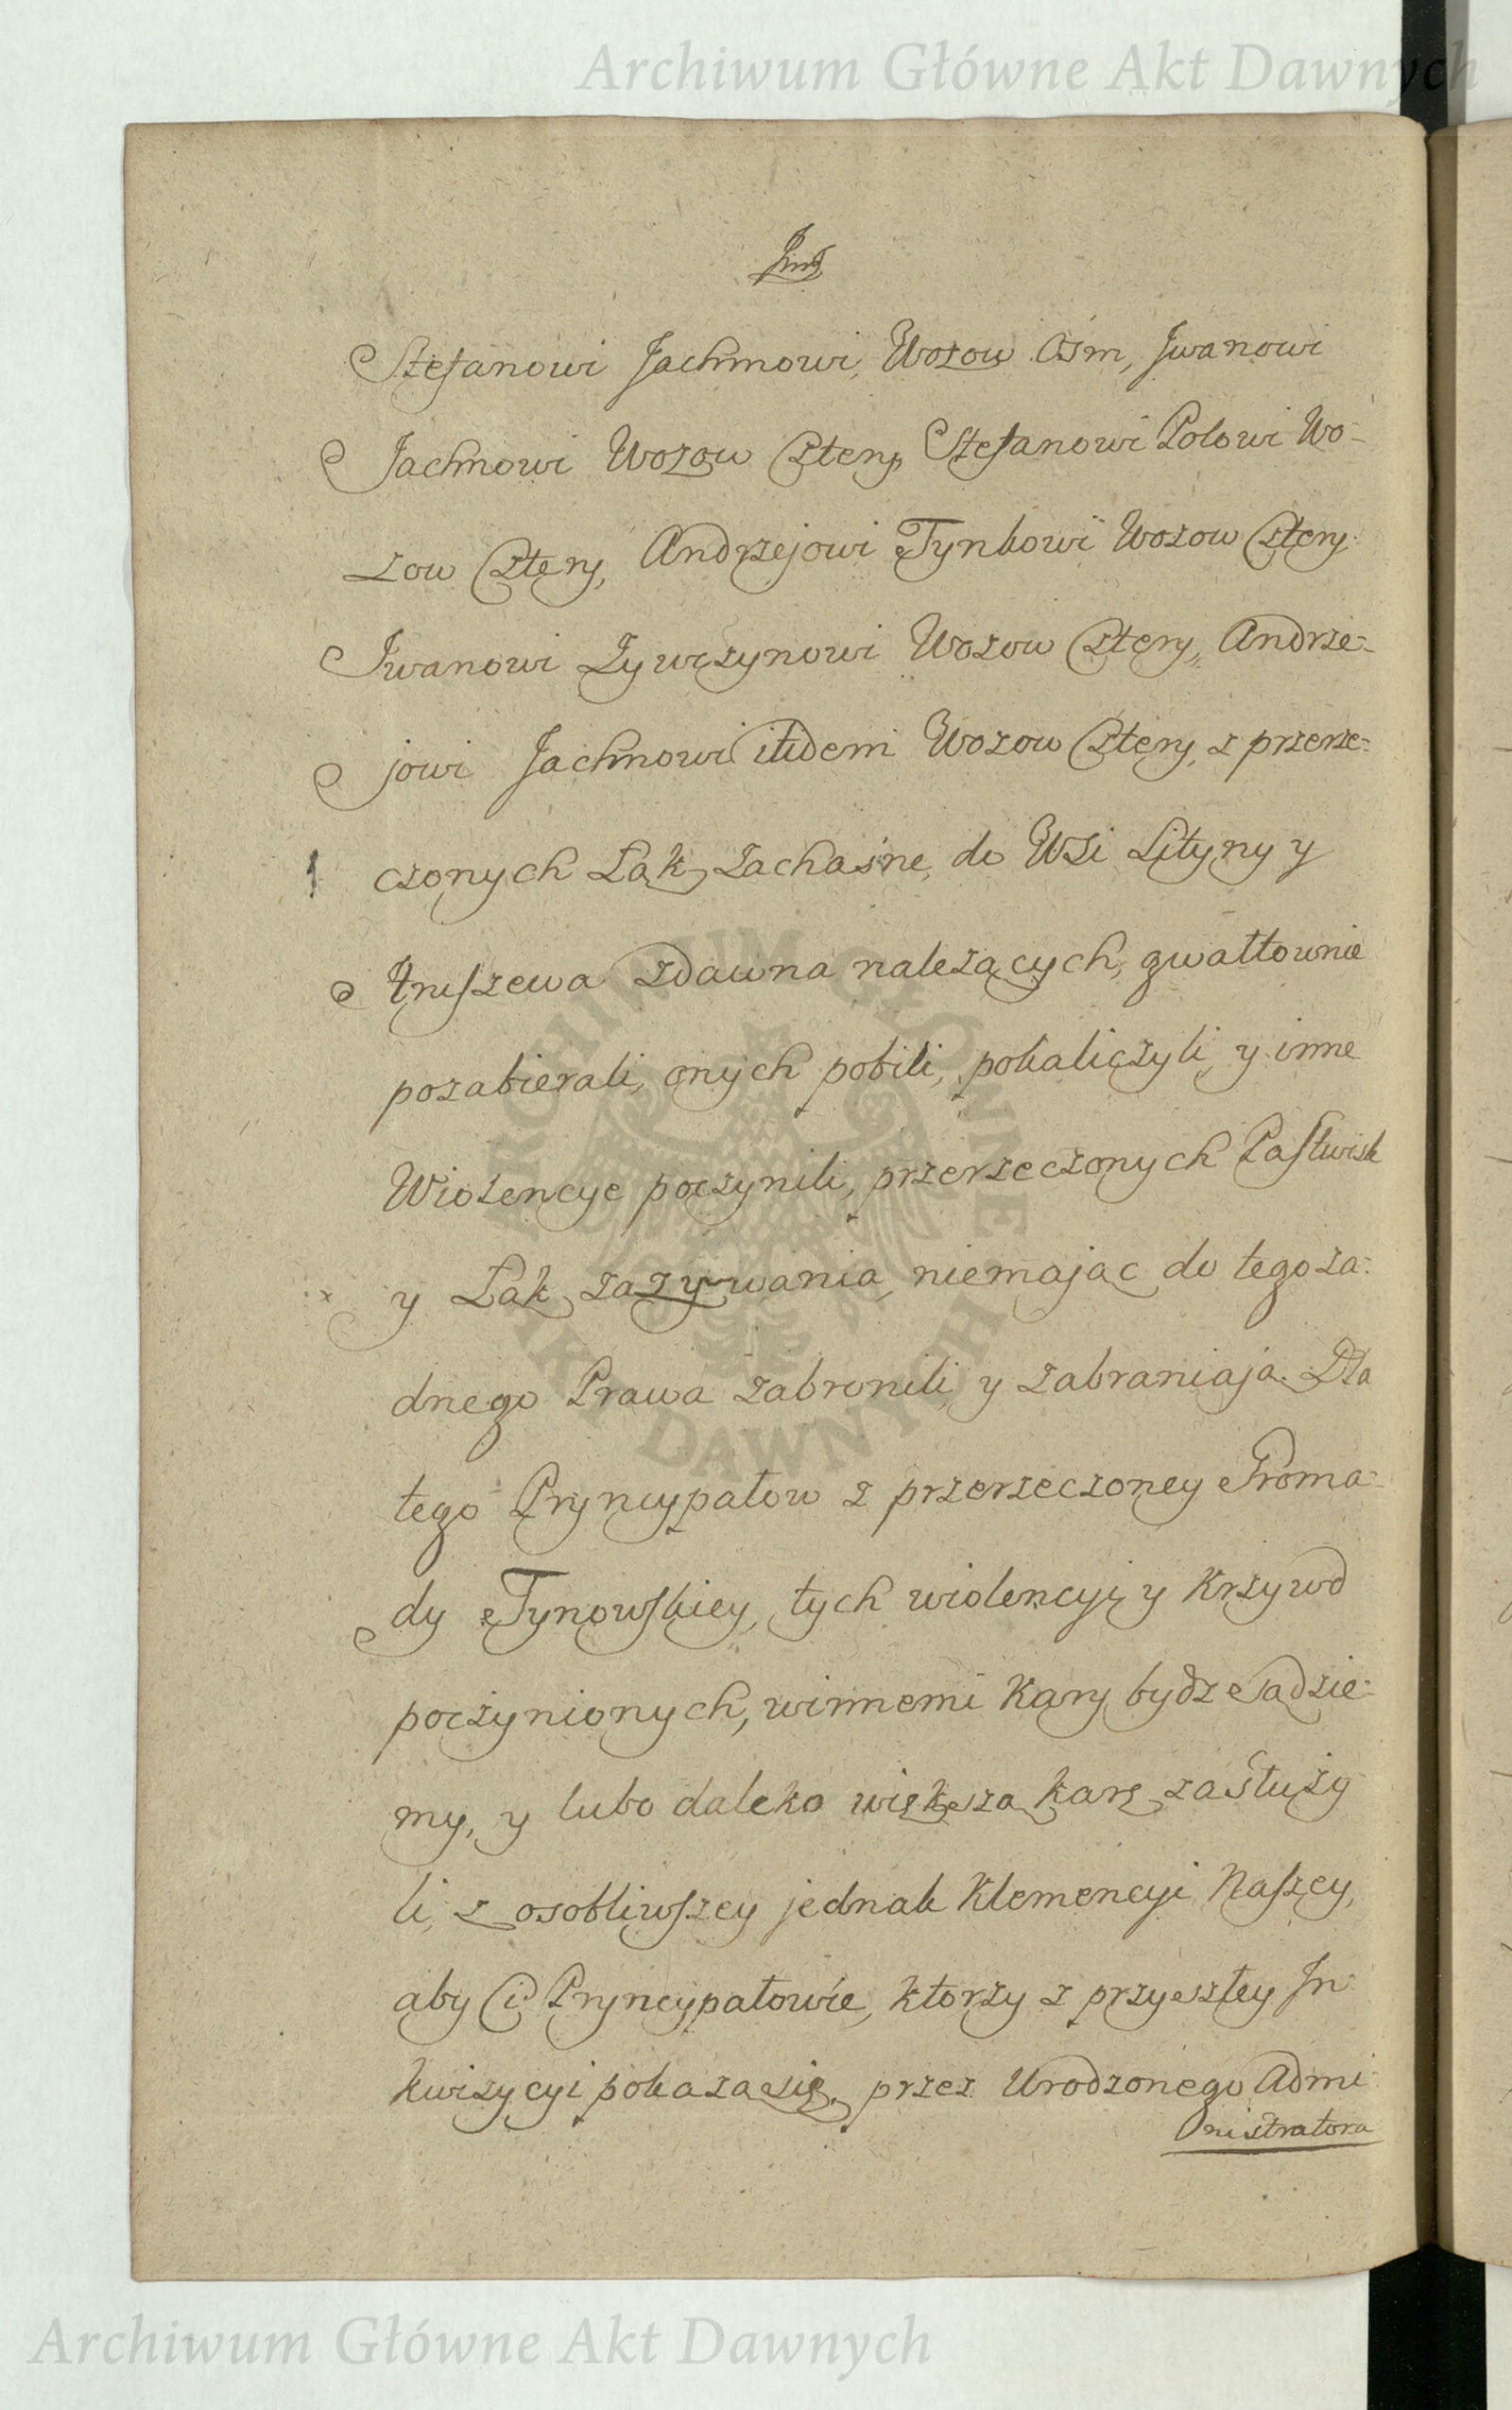 Archiwum Główne Akt Dawnych
Stefanowi Jachmowi, Wozow Ośm, Jwanowi
Jachmowi Wozow Cztery, Stefanowi Polowi Wo-
zow Cztery, Andrzejowi Tynkowi Wozow Cztery
Jwanowi Zywczynowi Wozow Cztery, Andrze-
jowi Jachmowi itidem Wozow Cztery, z przerze-
czonych Łąk, Zachaśne, do Wsi Lityny y
szewa zdawna należących, gwałtownie
pozabierali, onych pobili, pokaliczyli, y inne
Wiolencye poczynili, przerzeczonych Pastwisk
y Łąk zazywania, niemaiąc do tego ża-
dnego Prawa zabronili y zabraniają. Dla
tego Pryncypałow z przerzeczoney Groma-
dy Tynowskiey, tych wiolencyi y Krzywd
poczynionych, winnemi Kary bydz sądzie-
my, y lubo daleko większą karę zasłuży
li, z osobliwszey jednak Klemencyi Naszey,
aby Ci Pryncypałowie, ktorzy z przyszłey In-
kwizycyi pokazą się, przez Urodzonego Admi-
nistratora
ARCHIWUM GŁÓWNE
AKT DAWNYCH
Archiwum Główne Akt Dawnych